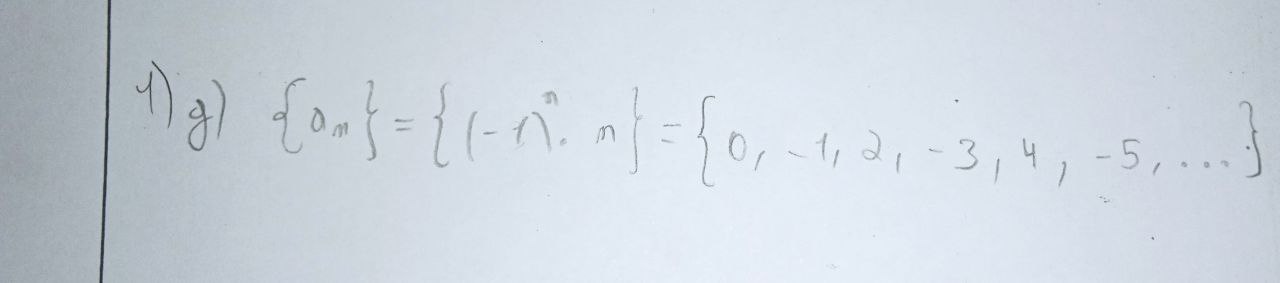 1) g) {aₙ} = {(-1)ⁿ. n} = {0, -1, 2, -3, 4, -5, ...}